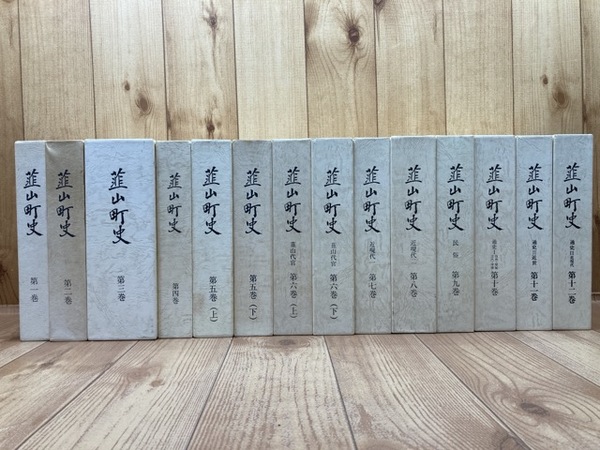 韮山町史 第一巻
韮山町史 第二巻
韮山町史 第三巻
韮山町史 第四巻
韮山町史 第五巻(上)
韮山町史 第五巻(下)
韮山町史 韮山代官 第六巻(上)
韮山町史 韮山代官 第六巻(下)
韮山町史 近現代一 第七巻
韮山町史 近現代二 第八巻
韮山町史 民俗 第九巻
韮山町史 通史Ⅰ 第十巻
韮山町史 通史Ⅱ近世 第十一巻
韮山町史 通史Ⅲ近現代 第十二巻